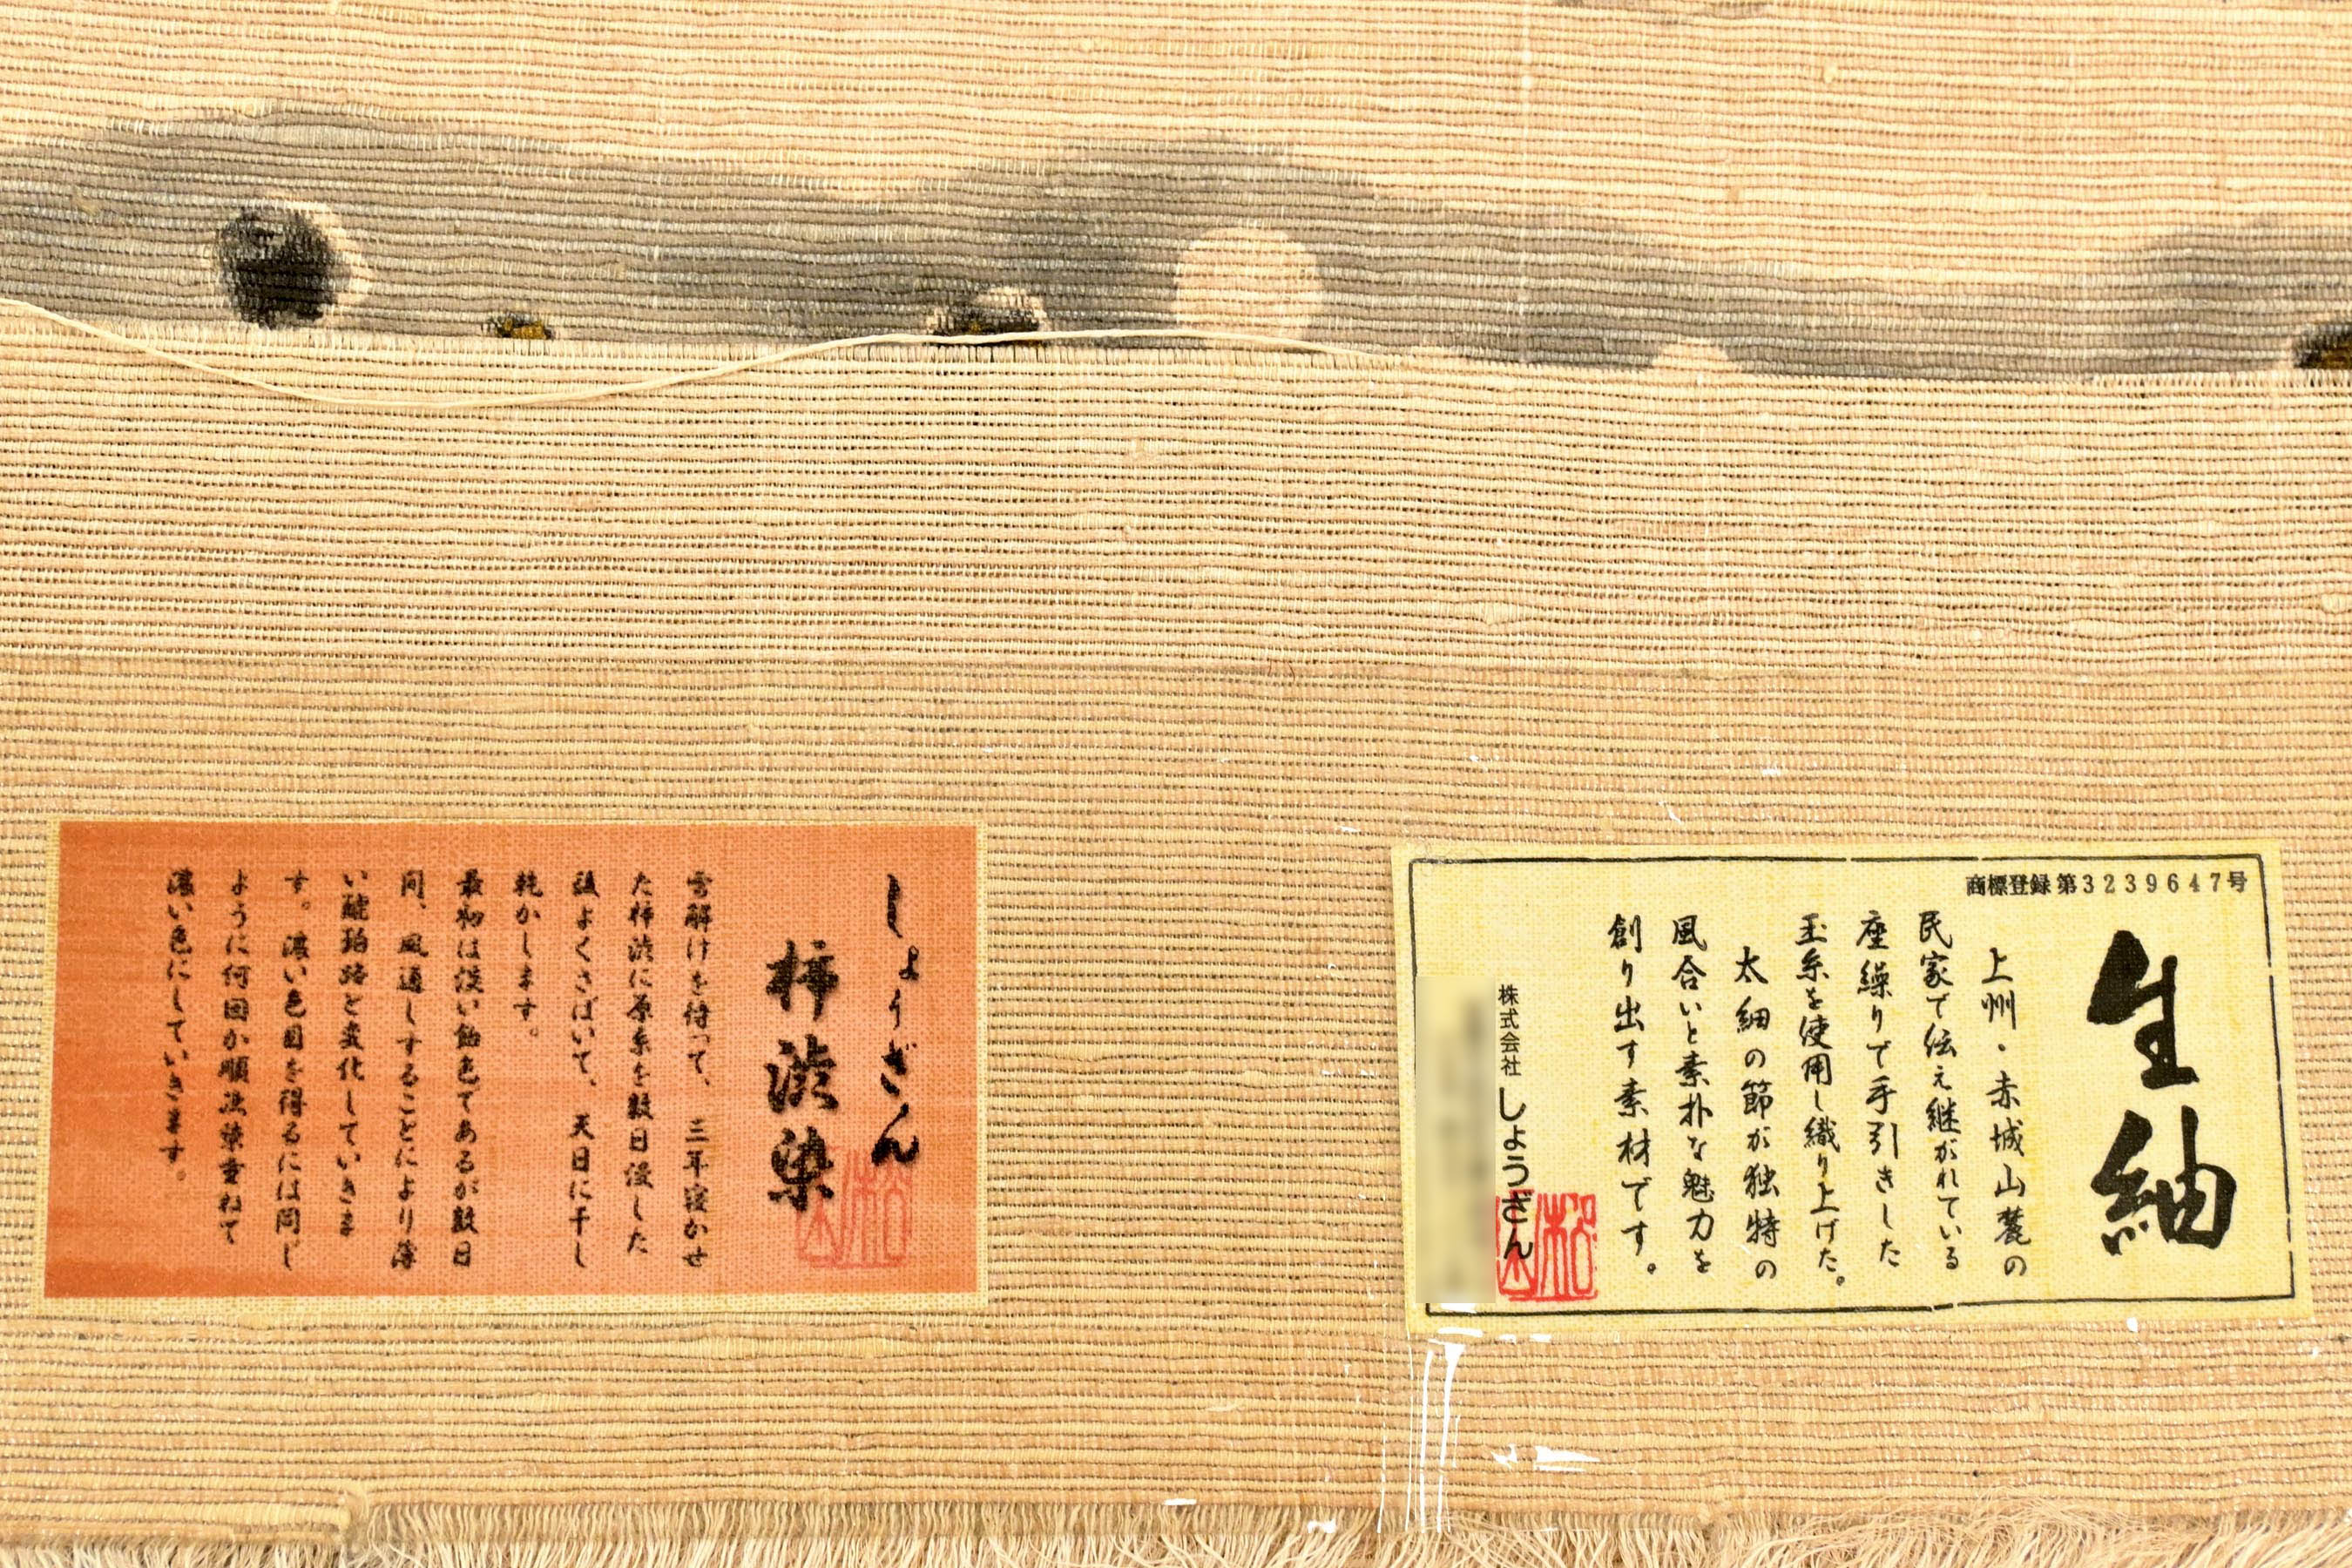 商標登録 第3239647号
生紬
上州・赤城山麓の
民家で伝え継がれている
座繰りで手引きした
玉糸を使用し織り上げた。
太細の節が独特の
風合いと素朴な魅力を
創り出す素材です。
株式会社 しょうざん
しょうざん
柿渋染
雪解けを待って、三年寝かせ
た柿渋に原糸を数日浸した
後よくさばいて、天日に干し
乾かします。
最初は淡い飴色であるが数日
間、風通しすることにより薄
い琥珀路と変化していきま
す。濃い色目を得るには同じ
ように何回か順次染重ねて
濃い色にしていきます。